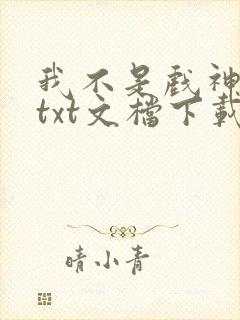 我不是戏神
txt文檔下載
晴小青